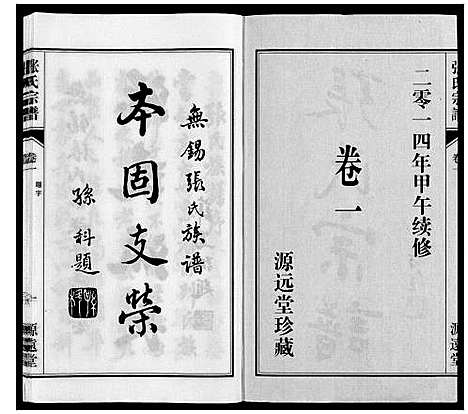 张氏宗譜
卷一
源遠堂
二零一四年甲午续修
卷一
源远堂珍藏
無錫張氏族譜
本固支榮
孫科題
張氏宗譜
卷一
題字
源遠堂